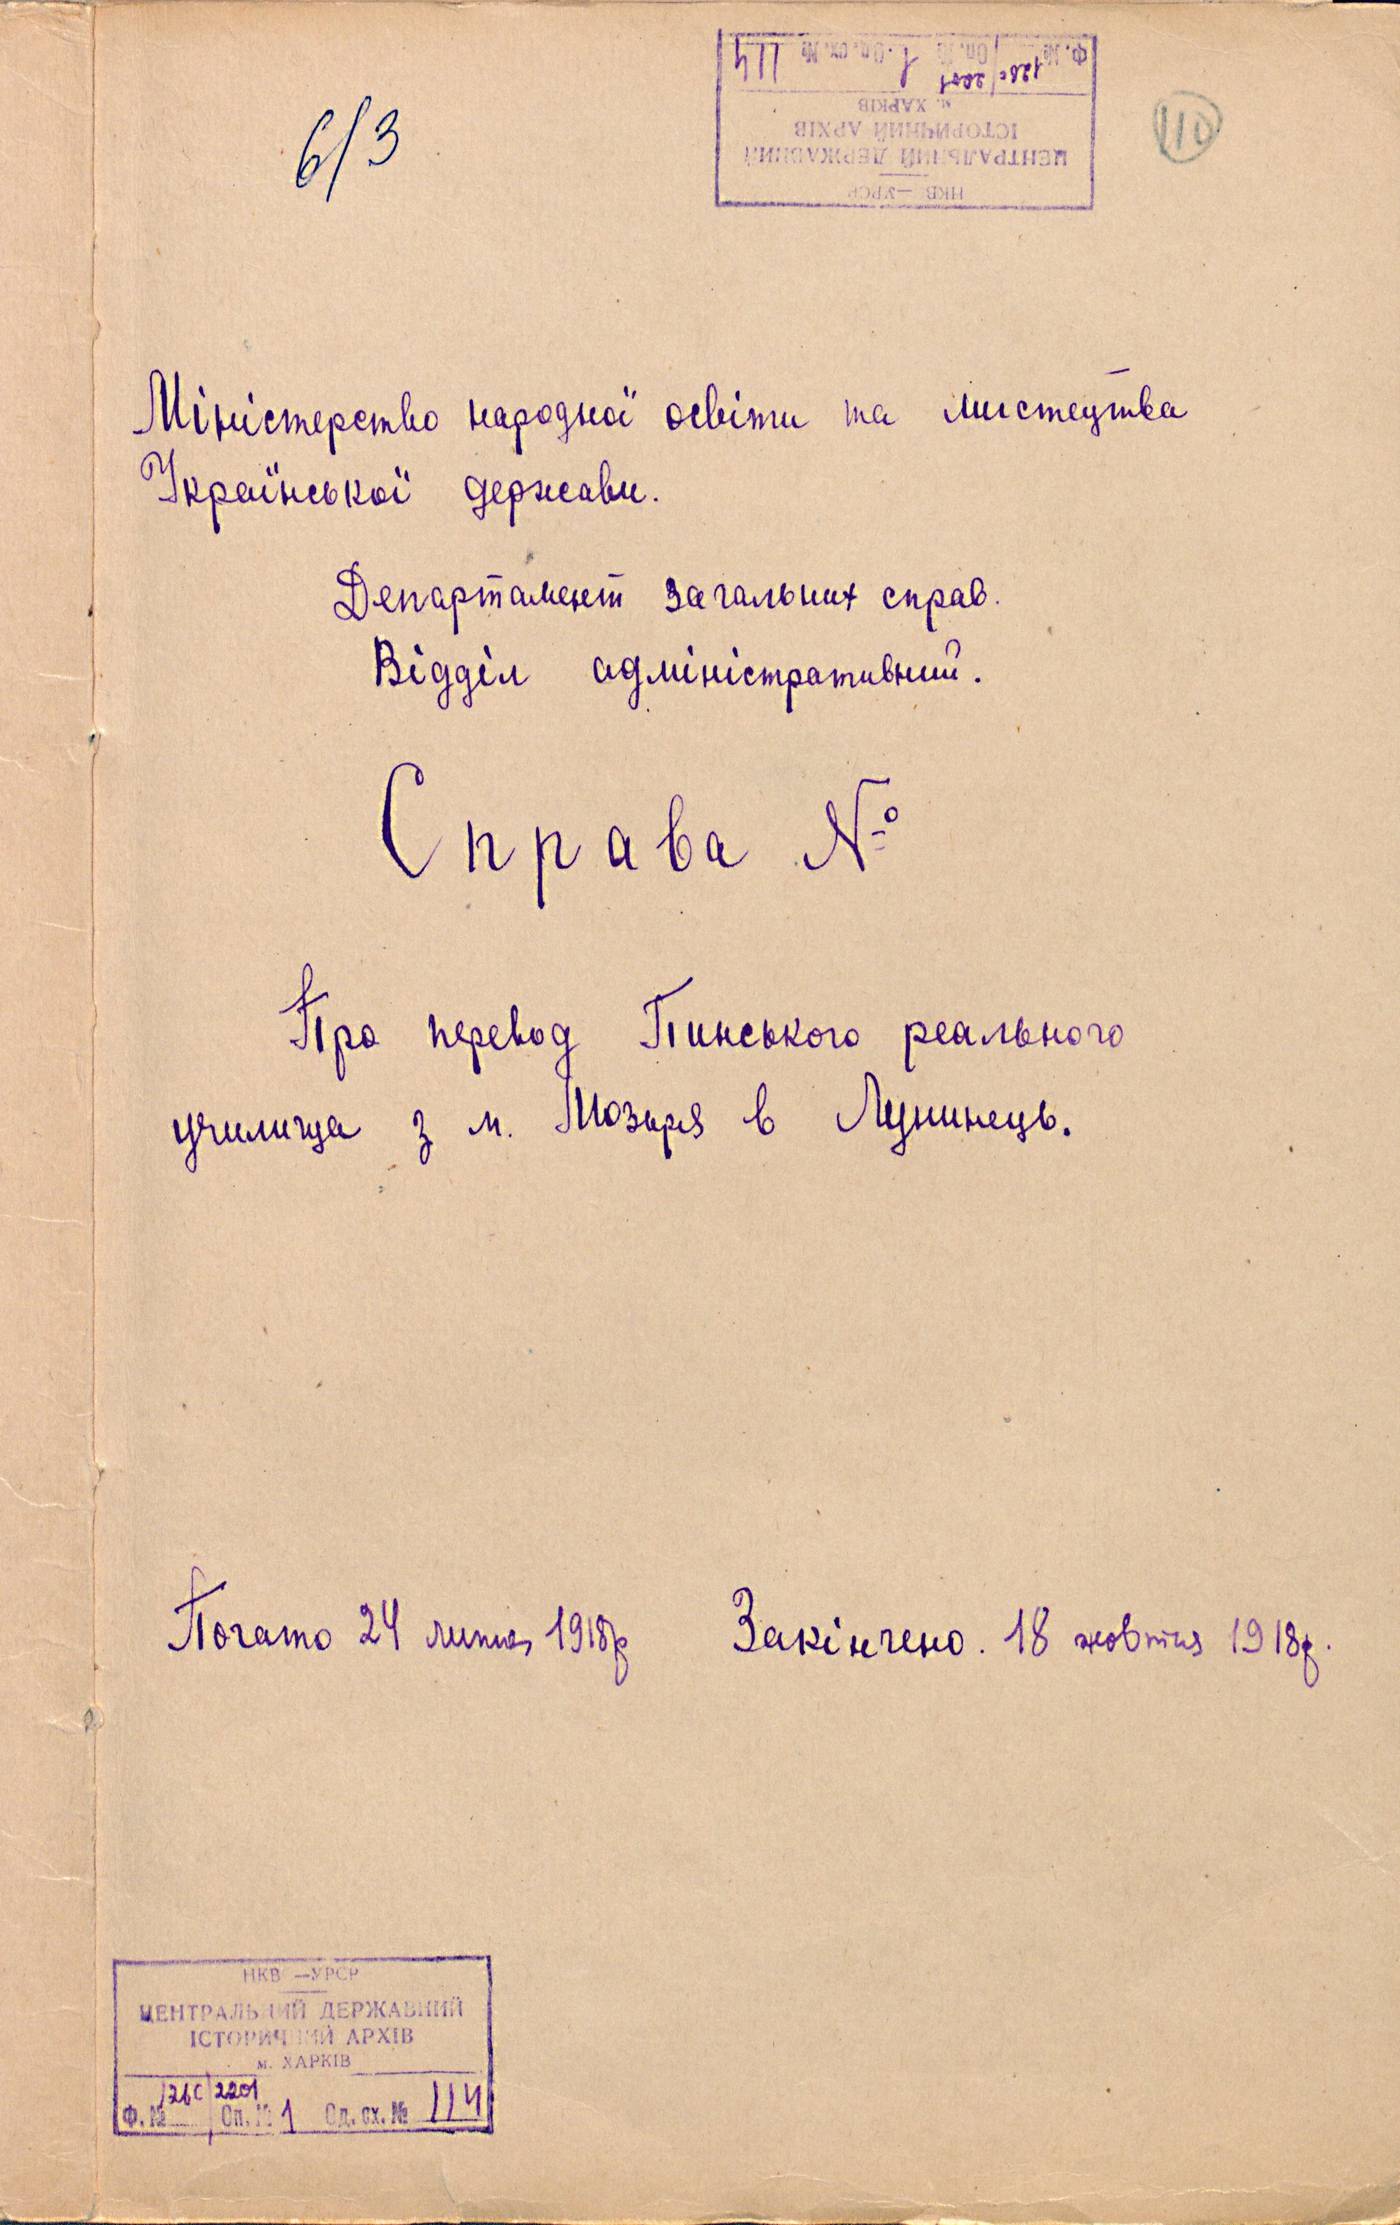 6/3
110
НКВС—УРСР
ЦЕНТРАЛЬНИЙ ДЕРЖАВНИЙ
ІСТОРИЧНИЙ АРХІВ
м. ХАРКІВ
Ф. № 2201 Оп. № 1 Од. сх. № 114
Міністерство народної освіти та мистецтва
Української держави.
Департамент загальних справ.
Відділ адміністративний.
Справа №
Про перевод Пинського реального
училища з м. Мозыря в Лунинець.
Почато 24 липня 1918р
Закінчено. 18 жовтня 1918р.
НКВС—УРСР
ЦЕНТРАЛЬНИЙ ДЕРЖАВНИЙ
ІСТОРИЧНИЙ АРХІВ
м. ХАРКІВ
Ф. № 2201 Оп. № 1 Од. сх. № 114